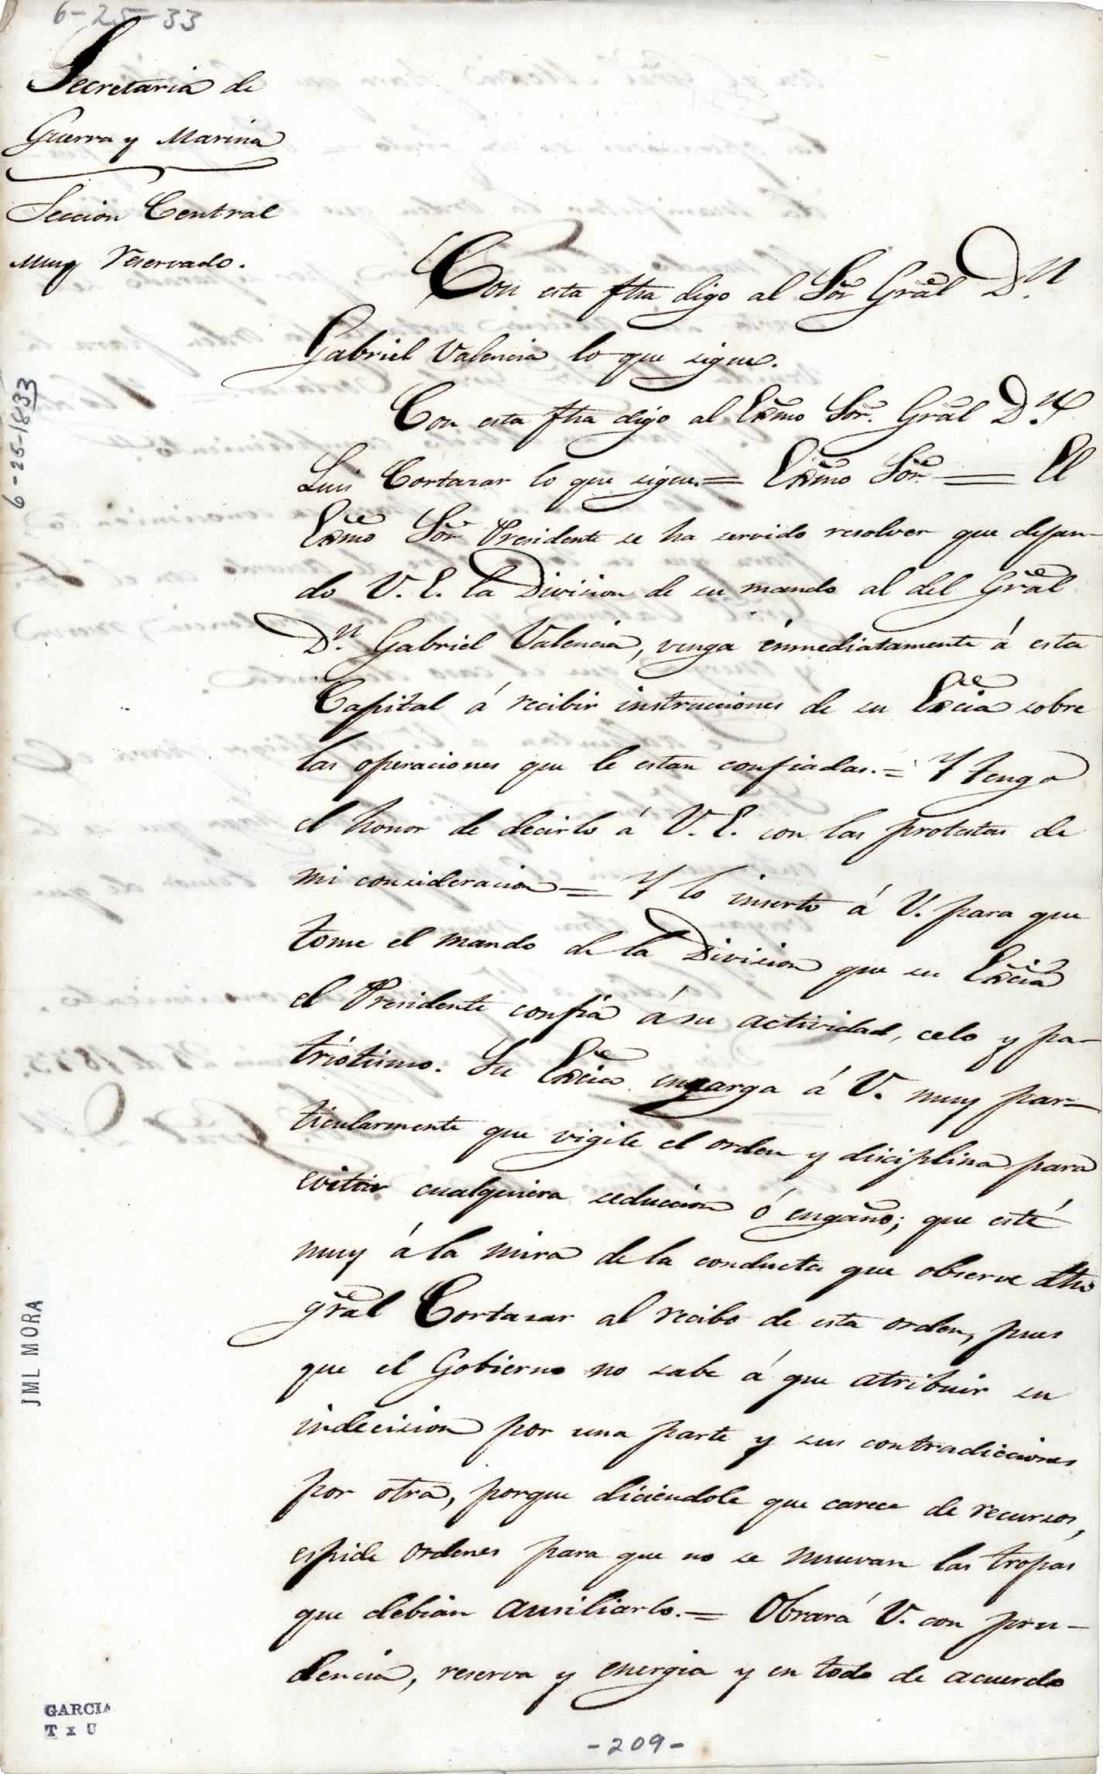 6-25-33
Secretaria de
Guerra y Marina
Seccion Central
Muy reservado.
Con esta fha digo al Sor Gral Dn
Gabriel Valencia lo que sigue.
Con esta fha digo al Exmo Sor. Gral Dn.
Luis Cortazar lo que sigue = Exmo Sor = El
Exmo Sor Presidente se ha servido resolver que dejan-
do V. E. la Division de su mando al del Gral
Dn. Gabriel Valencia, venga inmediatamente á esta
Capital á recibir instrucciones de su Excia sobre
las operaciones que le estan confiadas. = Y tengo
el honor de decirlo á V. E. con las protestas de
mi consideracion = Y lo inserto á V. para que
tome el mando de la Division que su Excia
el Presidente confia á su actividad, celo y pa-
triotismo. Su Excia encarga á V. muy par-
ticularmente que vigile el orden y disciplina para
evitar cualquiera seduccion ó engaño; que esté
muy á la mira de la conducta que observe dho
gral Cortazar al recibo de esta orden, pues
que el Gobierno no sabe á que atribuir su
indecision por una parte y sus contradicciones
por otra, porque diciendole que carece de recursos,
espide ordenes para que no se muevan las tropas
que debian ausiliarlo. = Obrará V. con pru-
dencia, reserva y energia y en todo de acuerdo
6-25-1833
JML MORA
GARCIA
T x U
-209-